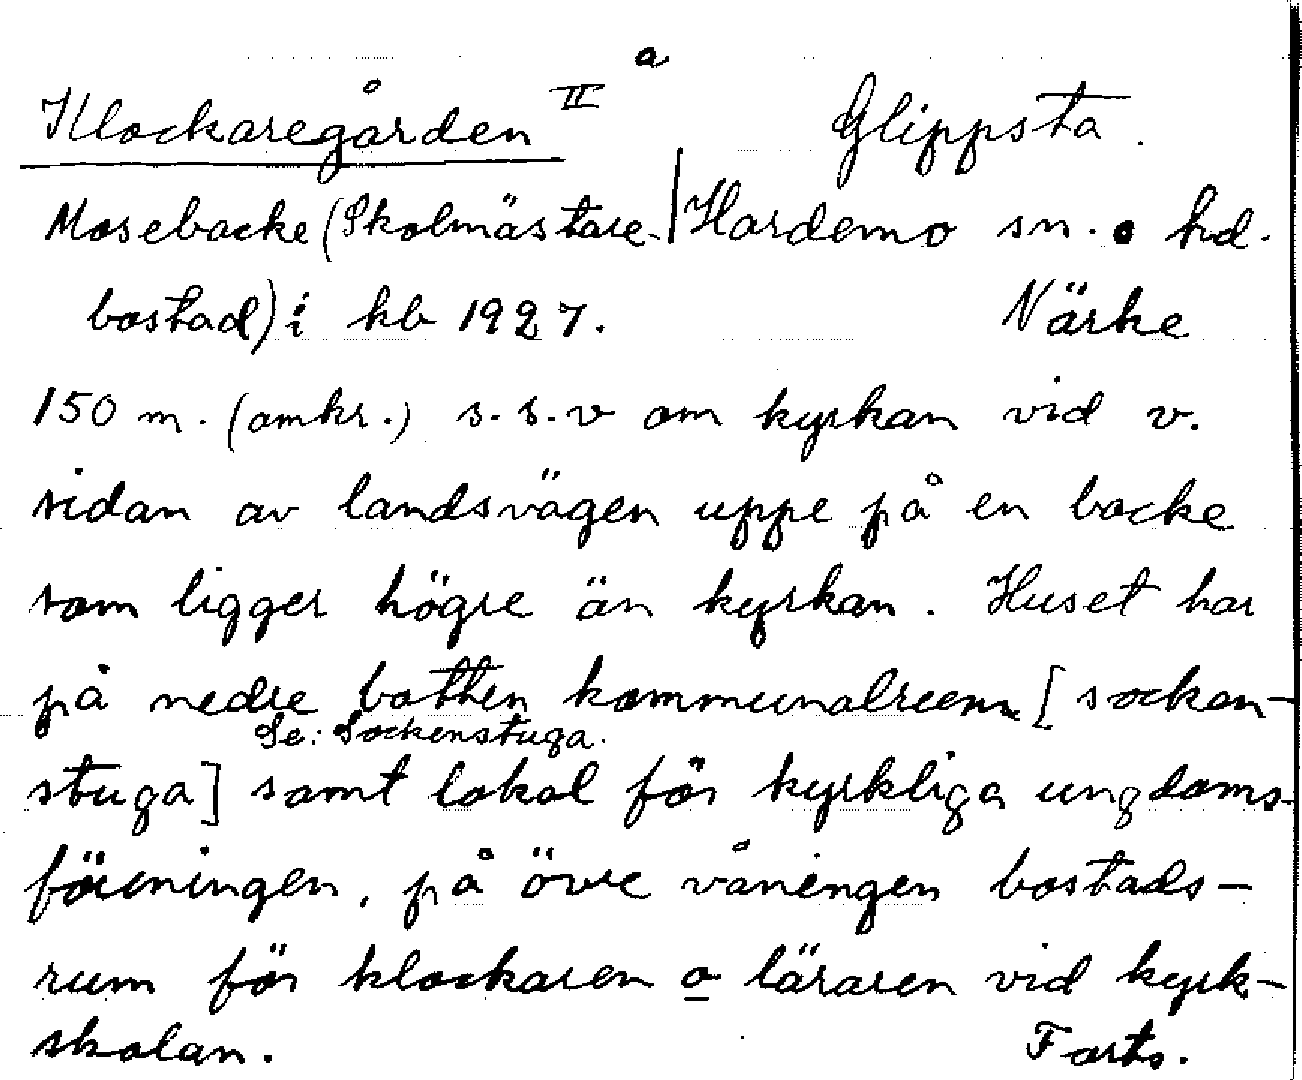 a
Klockaregården II Glippsta.
Mosebacke (Skolmästare- | Hardemo sn. o hd.
bostad) i kb 1927. Närke
150 m. (omkr.) s.s.v om kyrkan vid v.
sidan av landsvägen uppe på en backe
som ligger högre än kyrkan. Huset har
på nedre botten kommunalreum [sockan-
Se: Sockenstuga.
stuga] samt lokal för kyrkliga ungdoms-
föreningen, på övre våningen bostads-
rum för klockaren o läraren vid kyrk-
skolan. Forts.